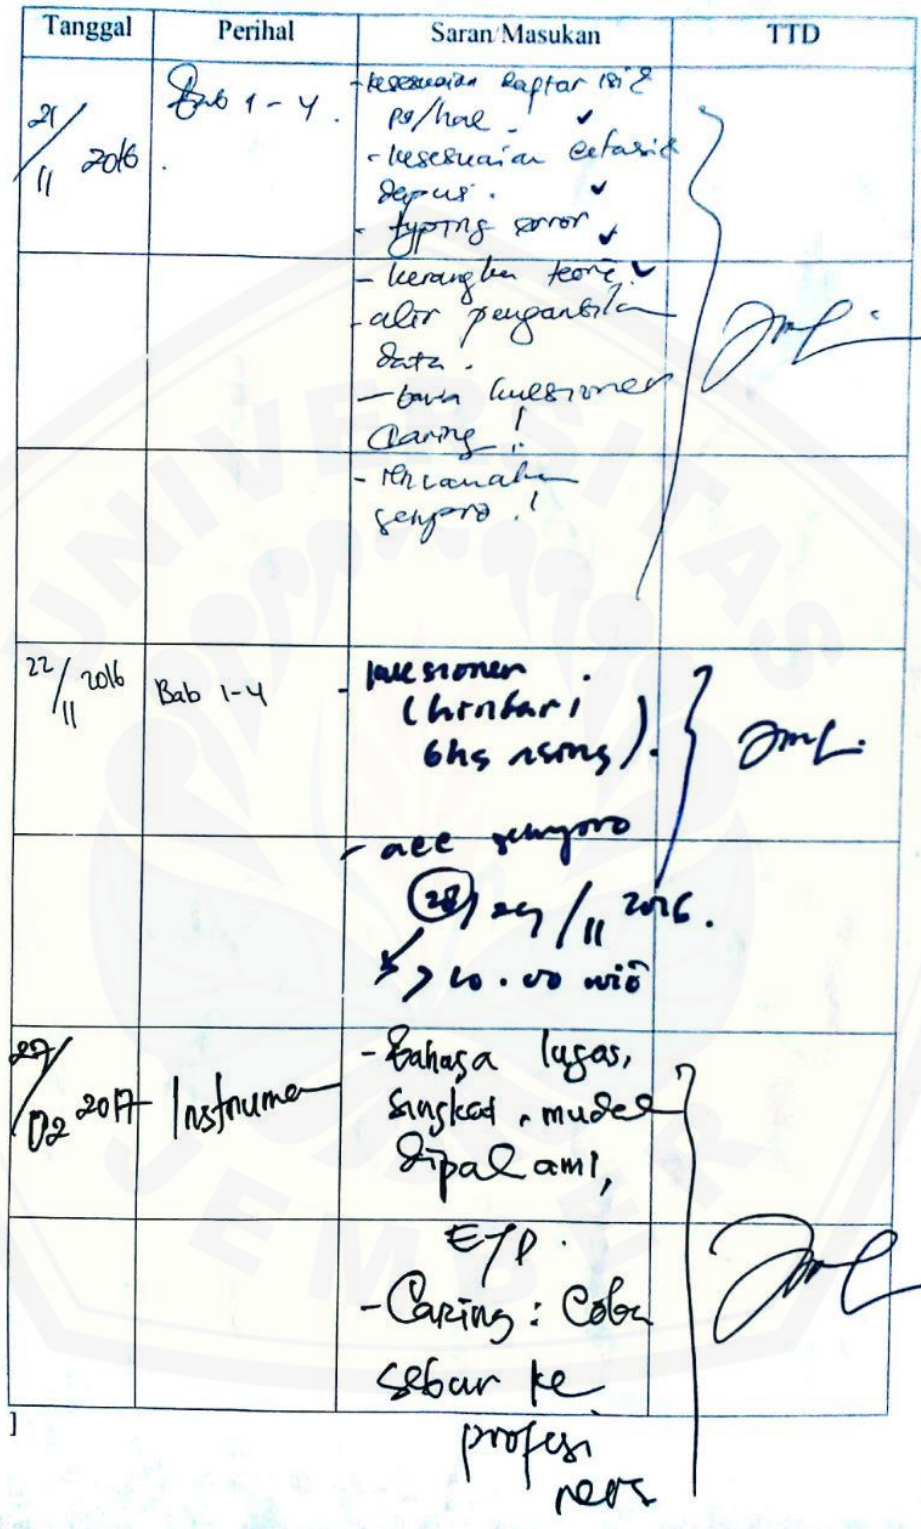 Tanggal Perihal Saran/Masukan TTD
21/11 2016 Bab 1 - 4. - kesesuaian daftar isi &
pd/hal. ✓
- kesesuaian
dapus. ✓
- typing error ✓
- kerangka teori ✓
- alir pengambilan
data.
- bawa kuesioner
Caring !
- rencanakan
sempro !
22/11 2016 Bab 1-4 - kuesioner
(hindari
bhs asing).
- acc sempro
28/29/11 2016.
> 10.00 wib
27/02 2017 Instrumen - Bahasa lugas,
singkat, mudah
dipahami,
EYD.
- Caring : Coba
sebar ke
profesi
ners
]
UNIVERSITAS
JEMBER